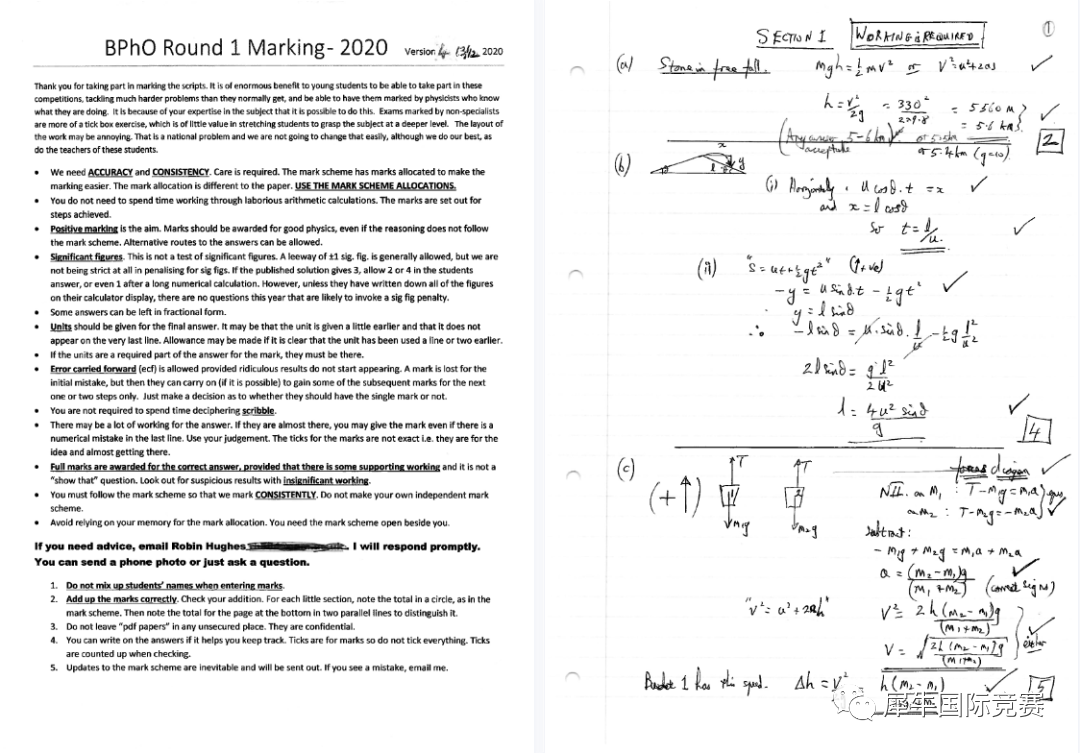 BPhO Round 1 Marking- 2020 Version 4 13/12 2020
Thank you for taking part in marking the scripts. It is of enormous benefit to young students to be able to take part in these
competitions, tackling much harder problems than they normally get, and be able to have them marked by physicists who know
what they are doing. It is because of your expertise in the subject that it is possible to do this. Exams marked by non-specialists
are more of a tick box exercise, which is of little value in stretching students to grasp the subject at a deeper level. The layout of
the work may be annoying. That is a national problem and we are not going to change that easily, although we do our best, as
do the teachers of these students.
• We need ACCURACY and CONSISTENCY. Care is required. The mark scheme has marks allocated to make the
marking easier. The mark allocation is different to the paper. USE THE MARK SCHEME ALLOCATIONS.
• You do not need to spend time working through laborious arithmetic calculations. The marks are set out for
steps achieved.
• Positive marking is the aim. Marks should be awarded for good physics, even if the reasoning does not follow
the mark scheme. Alternative routes to the answers can be allowed.
• Significant figures. This is not a test of significant figures. A leeway of ±1 sig. fig. is generally allowed, but we are
not being strict at all in penalising for sig figs. If the published solution gives 3, allow 2 or 4 in the students
answer, or even 1 after a long numerical calculation. However, unless they have written down all of the figures
on their calculator display, there are no questions this year that are likely to invoke a sig fig penalty.
• Some answers can be left in fractional form.
• Units should be given for the final answer. It may be that the unit is given a little earlier and that it does not
appear on the very last line. Allowance may be made if it is clear that the unit has been used a line or two earlier.
• If the units are a required part of the answer for the mark, they must be there.
• Error carried forward (ecf) is allowed provided ridiculous results do not start appearing. A mark is lost for the
initial mistake, but then they can carry on (if it is possible) to gain some of the subsequent marks for the next
one or two steps only. Just make a decision as to whether they should have the single mark or not.
• You are not required to spend time deciphering scribble.
• There may be a lot of working for the answer. If they are almost there, you may give the mark even if there is a
numerical mistake in the last line. Use your judgement. The ticks for the marks are not exact i.e. they are for the
idea and almost getting there.
• Full marks are awarded for the correct answer, provided that there is some supporting working and it is not a
"show that" question. Look out for suspicious results with insignificant working.
• You must follow the mark scheme so that we mark CONSISTENTLY. Do not make your own independent mark
scheme.
• Avoid relying on your memory for the mark allocation. You need the mark scheme open beside you.
If you need advice, email Robin Hughes. I will respond promptly.
You can send a phone photo or just ask a question.
1. Do not mix up students' names when entering marks.
2. Add up the marks correctly. Check your addition. For each little section, note the total in a circle, as in the
mark scheme. Then note the total for the page at the bottom in two parallel lines to distinguish it.
3. Do not leave "pdf papers" in any unsecured place. They are confidential.
4. You can write on the answers if it helps you keep track. Ticks are for marks so do not tick everything. Ticks
are counted up when checking.
5. Updates to the mark scheme are inevitable and will be sent out. If you see a mistake, email me.
SECTION I WORKING IS REQUIRED ①
(a) Stone in free fall. mgh = ½mv² or v² = u² + 2as ✓
h = v²/2g = 330²/2×9.8 = 5560 m ✓
= 5.6 km
(Any answer 5-6 km acceptable) or 5.5 km
or 5.4 km (g=10). 2
(b) x y l
(i) Horizontally. u cosθ.t = x ✓
and x = l cosθ
so t = l/u. ✓
(ii) "s = ut + ½gt²" (↑+ve)
-y = u sinθ.t - ½gt² ✓
y = l sinθ
∴ -l sinθ = u.sinθ. l/u - ½g l²/u²
2l sinθ = g l²/2u²
l = 4u² sinθ/g ✓ 4
(c) (+↑) T T forces diagram ✓
m₁g m₂g
NII. on m₁ : T - m₁g = m₁a
on m₂ : T - m₂g = -m₂a ✓
subtract:
-m₁g + m₂g = m₁a + m₂a
a = (m₂-m₁)g/(m₁+m₂) ✓ (correct signs)
"v² = u² + 2ah" v² = 2h(m₂-m₁)g/(m₁+m₂)
v = √2h(m₂-m₁)g/(m₁+m₂) either ✓
Bucket 1 has this speed. Δh = v² h(m₂-m₁) ✓ 5
犀牛国际竞赛